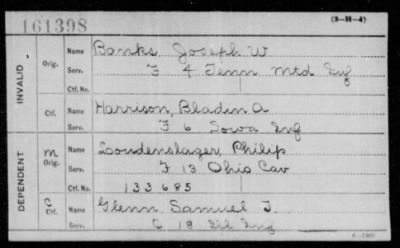 161398
(3-H-4)
INVALID
Orig.
Name Banks, Joseph W
Serv. F 4 Tenn Mtd Inf
Ctf. No.
Ctf.
Name Harrison, Bladin A
Serv. F 6 Iowa Inf
DEPENDENT
M
Orig.
Name Loudenslager, Philip
Serv. F 13 Ohio Cav
Ctf. No. 133685
C
Ctf.
Name Glenn Samuel J.
Serv. C 18 Ill Inf